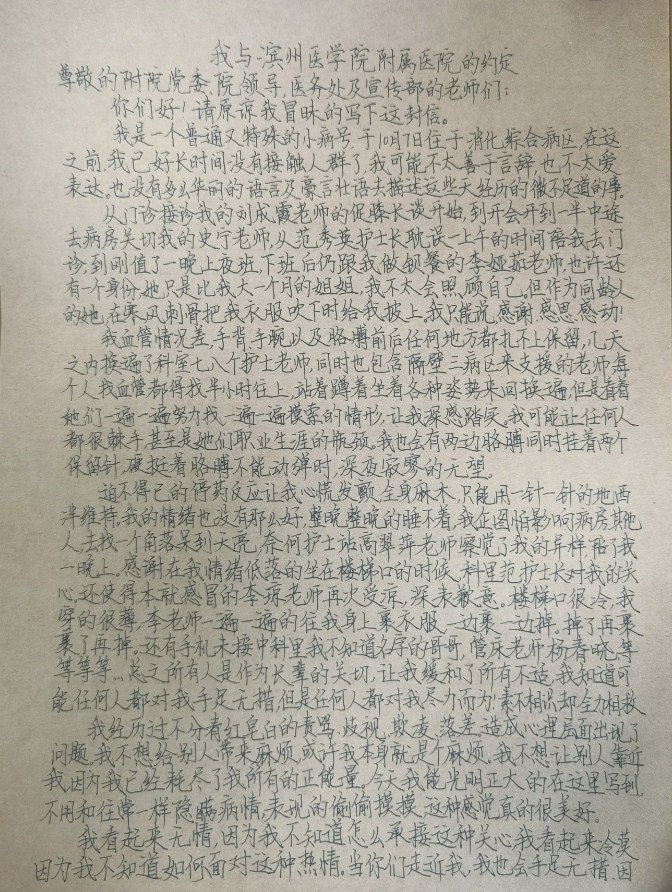 我与滨州医学院附属医院的约定
尊敬的附院党委、院领导、医务处及宣传部的老师们：
你们好！请原谅我冒昧的写下这封信。
我是一个普通又特殊的小病号，于10月7日住于消化综合病区，在这
之前，我已好长时间没有接触人群了，我可能不太善于言辞，也不太爱
表达。也没有多么华丽的语言及豪言壮语去描述这些天经历的微不足道的事。
从门诊接诊我的刘成霞老师的促膝长谈开始，到开会开到一半中途
去病房关切我的史宁老师，从范秀英护士长耽误一上午的时间陪我去门
诊，到刚值了一晚上夜班，下班后仍跟我做锁餐的李娅茹老师，也许还
有一个身份，她只是比我大一个月的姐姐，我不太会照顾自己。但作为同龄人
的她，在寒风刺骨把我衣服吹下时给我披上，我只能说感谢感恩感动！
我血管情况差，手背手腕以及胳膊前后任何地方都扎不上保留，几天
之内换遍了科室七八个护士老师，同时也包含隔壁三病区来支援的老师，每
个人找血管都得找半小时往上，站着蹲着坐着各种姿势来回换一遍，但是看着
她们一遍一遍努力找，一遍一遍摸索的情形，让我深感踏实。我可能让任何人
都很棘手，甚至是她们职业生涯的瓶颈。我也会有两边胳膊同时挂着两个
保留针，硬挺着胳膊不能动弹时，深夜寂寥的无望。
迫不得已的停药反应让我心慌发颤，全身麻木，只能用一针一针的地西
泮维持，我的情绪也没有那么好，整晚整晚的睡不着，我企图怕影响病房其他
人，去找一个角落呆到天亮，奈何护士站高翠萍老师察觉了我的异样，陪了我
一晚上。感谢在我情绪低落的坐在楼梯口的时候，科里范护士长对我的关
心，还使得本就感冒的李琼老师再次受凉，深表歉意。楼梯口很冷，我
穿的很薄，李老师一遍一遍的往我身上裹衣服，一边裹一边掉。掉了再裹
裹了再掉。还有手机未接中科里我不知道名字的哥哥，管床老师杨春晓，等
等等等...总之所有人是作为长辈的关切，让我缓和了所有不适。我知道可
能任何人都对我手足无措，但是任何人都对我尽力而为！素不相识却全力相救
我经历过不分青红皂白的责骂、歧视、欺凌、落差，造成心理层面出现了
问题，我不想给别人带来麻烦，或许我本身就是个麻烦。我不想让别人靠近
我，因为我已经耗尽了我所有的正能量。今天我能光明正大的在这里写到，
不用和往常一样隐瞒病情，表现的偷偷摸摸，这种感觉真的很美好。
我看起来无情，因为我不知道怎么承接这种关心，我看起来冷漠
因为我不知道如何面对这种热情。当你们走近我，我也会手足无措，因